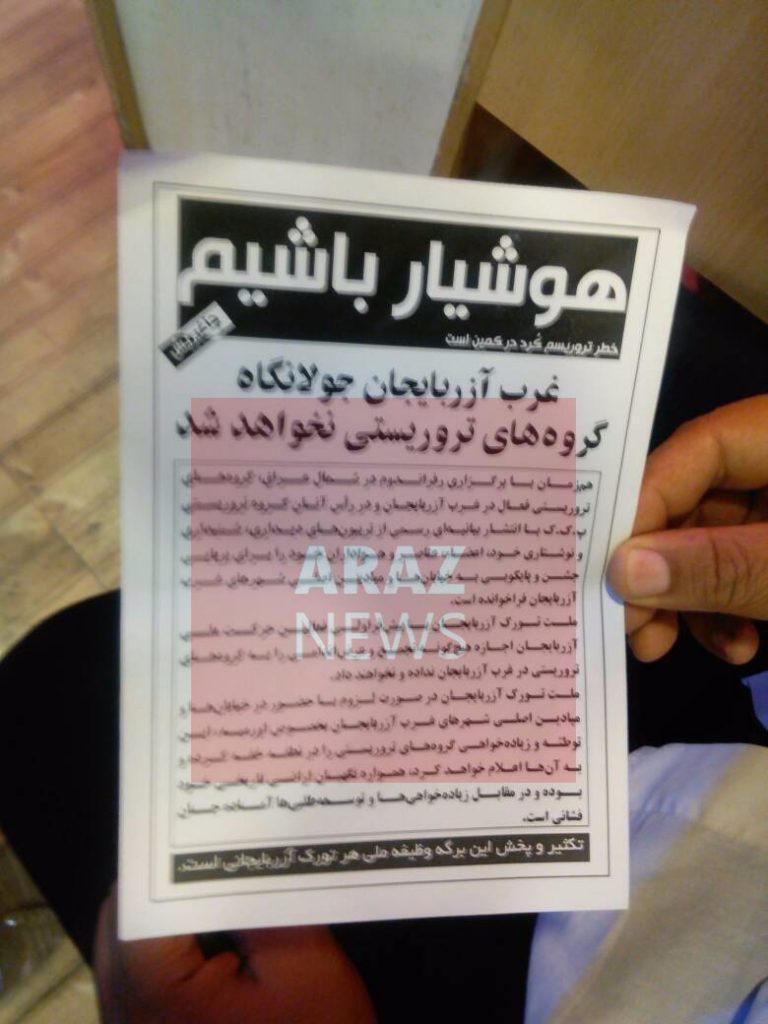 هوشیار باشیم
خطر تروریسم کُرد در کمین است
غرب آزربایجان جولانگاه
گروه‌های تروریستی نخواهد شد
همزمان با برگزاری رفراندوم در شمال عراق، گروه‌های
تروریستی فعال در غرب آزربایجان و در رأس آنان گروه تروریستی
پ.ک.ک با انتشار بیانیه‌ای رسمی از تریبون‌های دیداری، شنیداری
و نوشتاری خود، اعضا، عناصر و هواداران خود را برای برپایی
جشن و پایکوبی به خیابان‌ها و میادین اصلی شهرهای غرب
آزربایجان فراخوانده است.
ملت تورک آزربایجان حرکت ملی
آزربایجان اجازه هیچ‌گونه را به گروه‌های
تروریستی در غرب آزربایجان نداده و نخواهند داد.
ملت تورک آزربایجان در صورت لزوم با حضور در خیابان‌ها و
میادین اصلی شهرهای غرب آزربایجان بخصوص اورمیه، این
توطئه و زیاده‌خواهی گروه‌های تروریستی را در نطفه خفه کرده و
به آن‌ها اعلام خواهد کرد، همواره نگهبان اراضی تاریخی خود
بوده و در مقابل زیاده‌خواهی‌ها و توسعه‌طلبی‌ها آماده جان
فشانی است.
تکثیر و پخش این برگه وظیفه ملی هر تورک آزربایجانی است.
ARAZ
NEWS